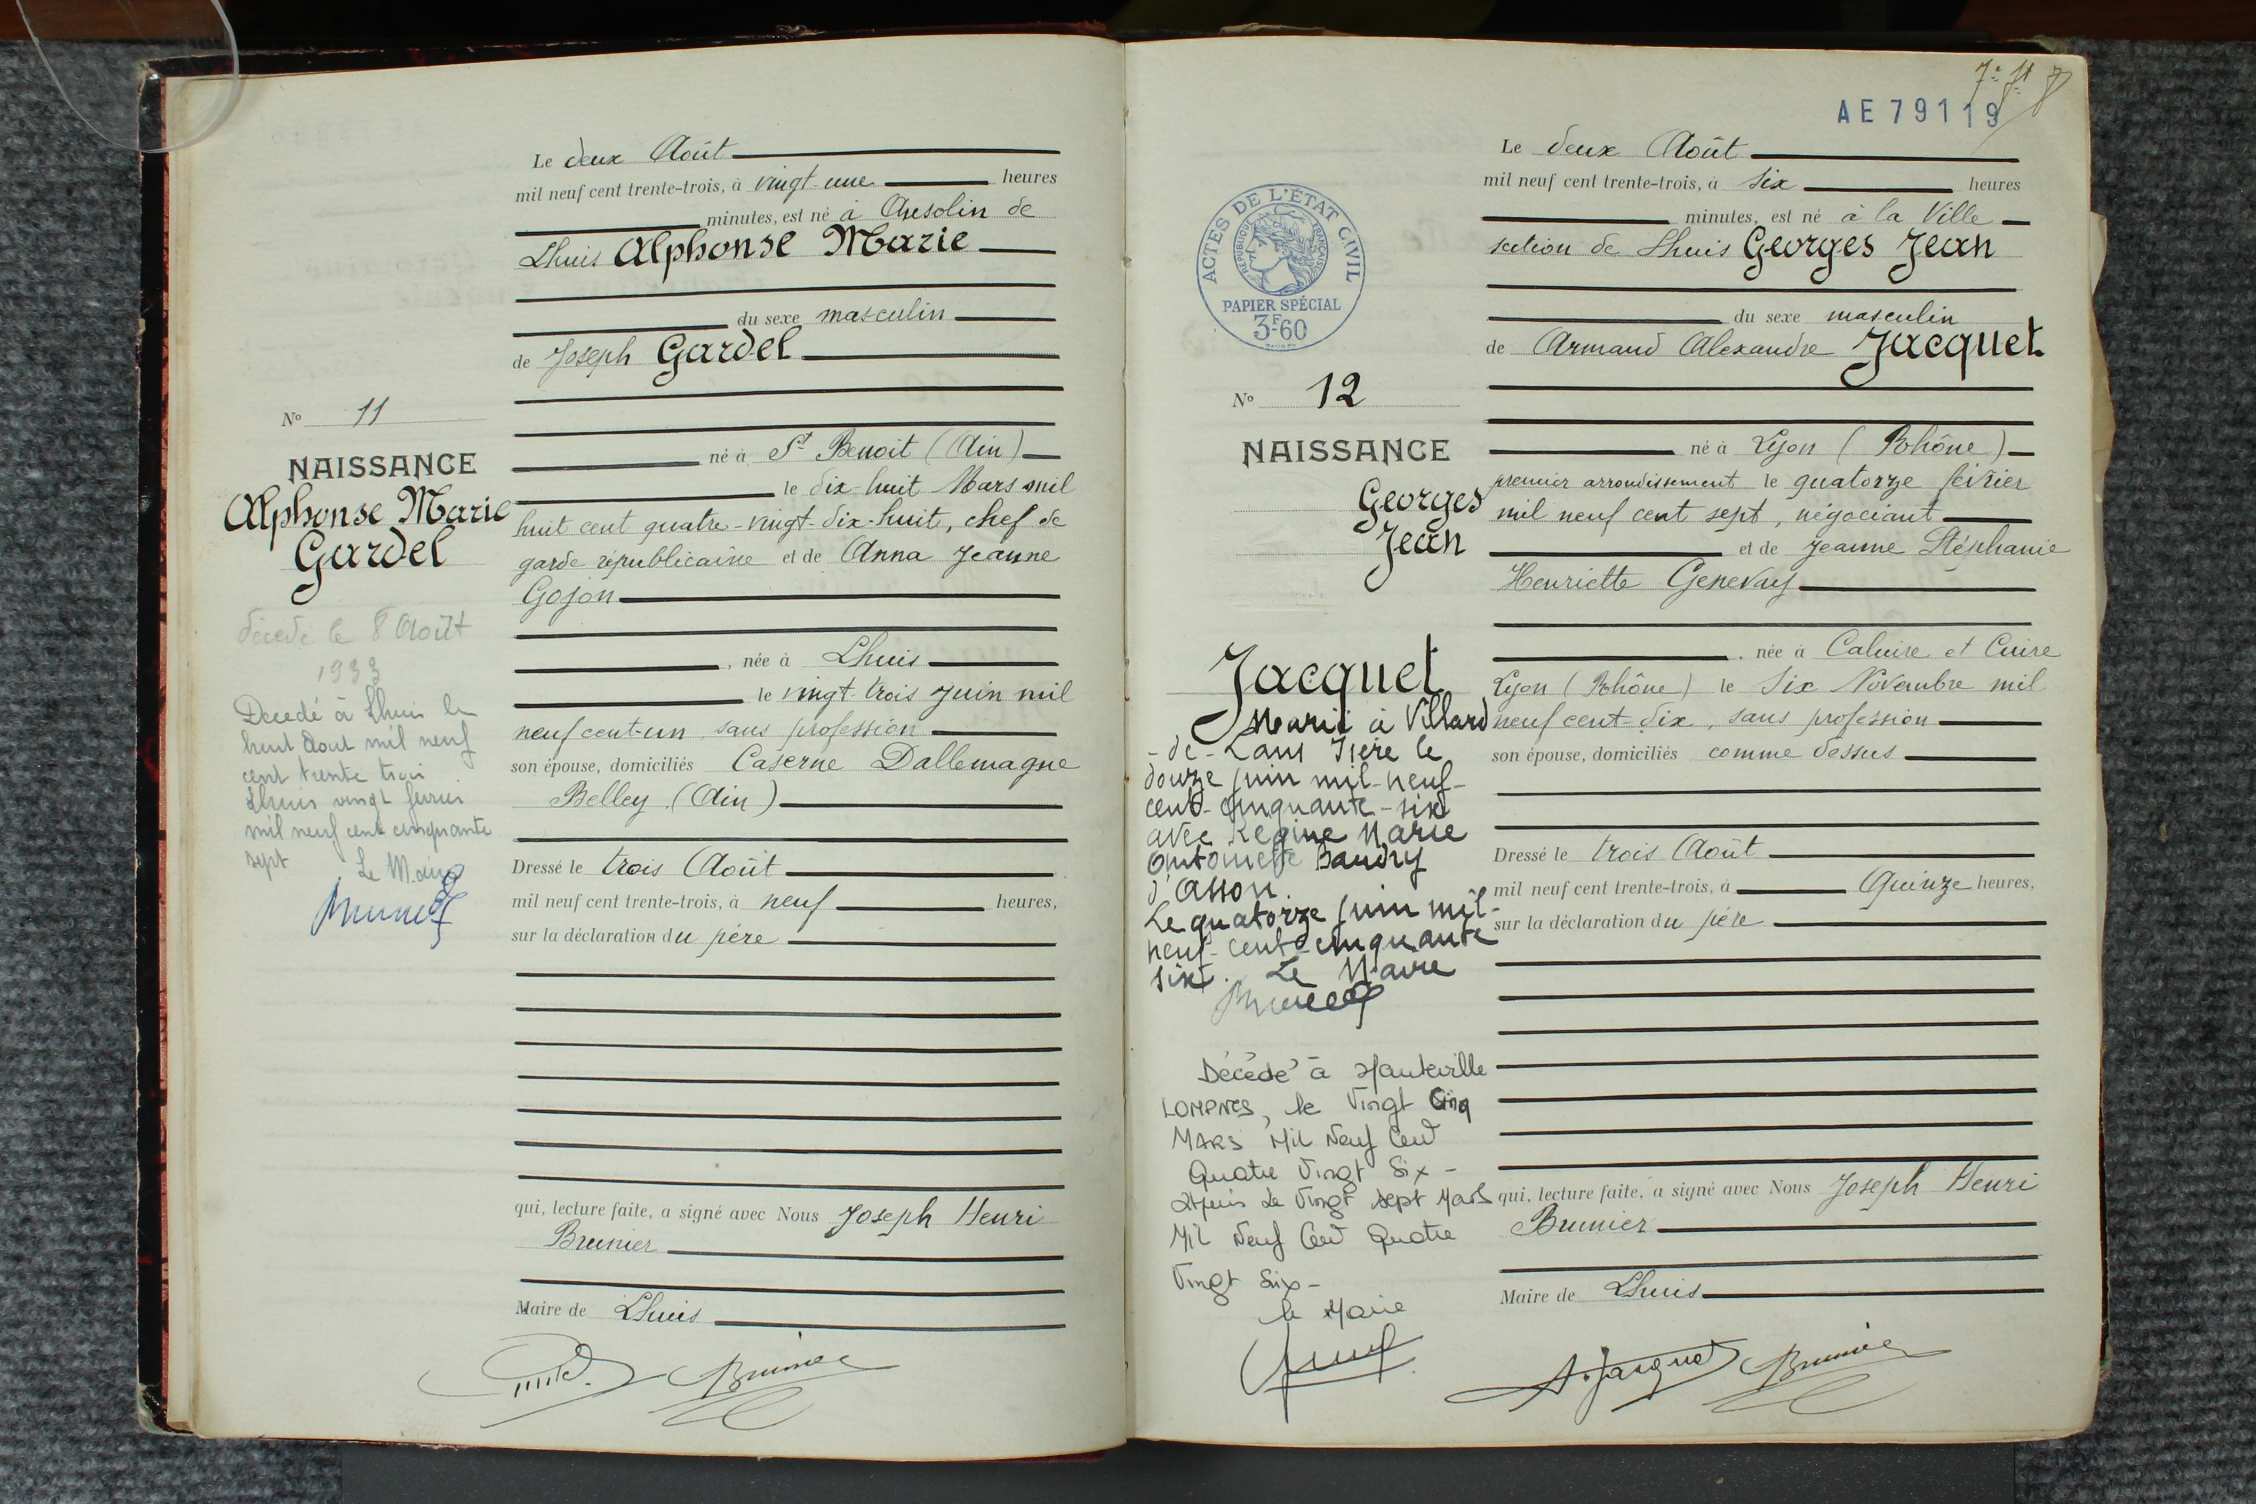 Le deux Août
mil neuf cent trente-trois, à vingt-une heures
minutes, est né à Ansolin de
Lhuis Alphonse Marie
du sexe masculin
de Joseph Gardel
né à St Benoit (Ain)
le dix-huit Mars mil
huit cent quatre-vingt-dix-huit, chef de
garde républicaine et de Anna Jeanne
Gojon
, née à Lhuis
le vingt-trois juin mil
neuf cent-un sans profession
son épouse, domiciliés Caserne Dallemagne
Belley (Ain)
Dressé le trois Août
mil neuf cent trente-trois, à neuf heures,
sur la déclaration du père
qui, lecture faite, a signé avec Nous Joseph Henri
Brunier
Maire de Lhuis
Brunier
No 11
NAISSANCE
Alphonse Marie
Gardel
décédé le 8 Août
1933
Decedé à Lhuis le
huit Aout mil neuf
cent trente trois
Lhuis vingt fevrier
mil neuf cent cinquante
sept Le Maire
7e
AE 79119
Le deux Août
mil neuf cent trente-trois, à six heures
minutes, est né à la Ville
section de Lhuis Georges Jean
du sexe masculin
de Armand Alexandre Jacquet
né à Lyon (Rhône)
premier arrondissement le quatorze février
mil neuf cent sept, négociant
et de Jeanne Stéphanie
Henriette Genevay
, née à Caluire et Cuire
Lyon (Rhône) le Six Novembre mil
neuf cent-dix, sans profession
son épouse, domiciliés comme dessus
Dressé le trois Août
mil neuf cent trente-trois, à Quinze heures,
sur la déclaration du père
qui, lecture faite, a signé avec Nous Joseph Henri
Brunier
Maire de Lhuis
A. Jacquet Brunier
ACTES DE L'ÉTAT CIVIL
RÉPUBLIQUE FRANÇAISE
PAPIER SPÉCIAL
3F60
No 12
NAISSANCE
Georges
Jean
Jacquet
Marié à Villard
-de-Lans Isère le
douze juin mil-neuf-
cent-cinquante-six
avec Régine Marie
Antoinette Baudry
d'Asson.
Le quatorze juin mil-
neuf-cent-cinquante
six. Le Maire
Décédé à Hauteville
LOMPNES, le Vingt Cinq
MARS Mil Neuf Cent
Quatre Vingt Six -
Lhuis Le Vingt sept Mars
Mil Neuf Cent Quatre
Vingt Six -
le Maire